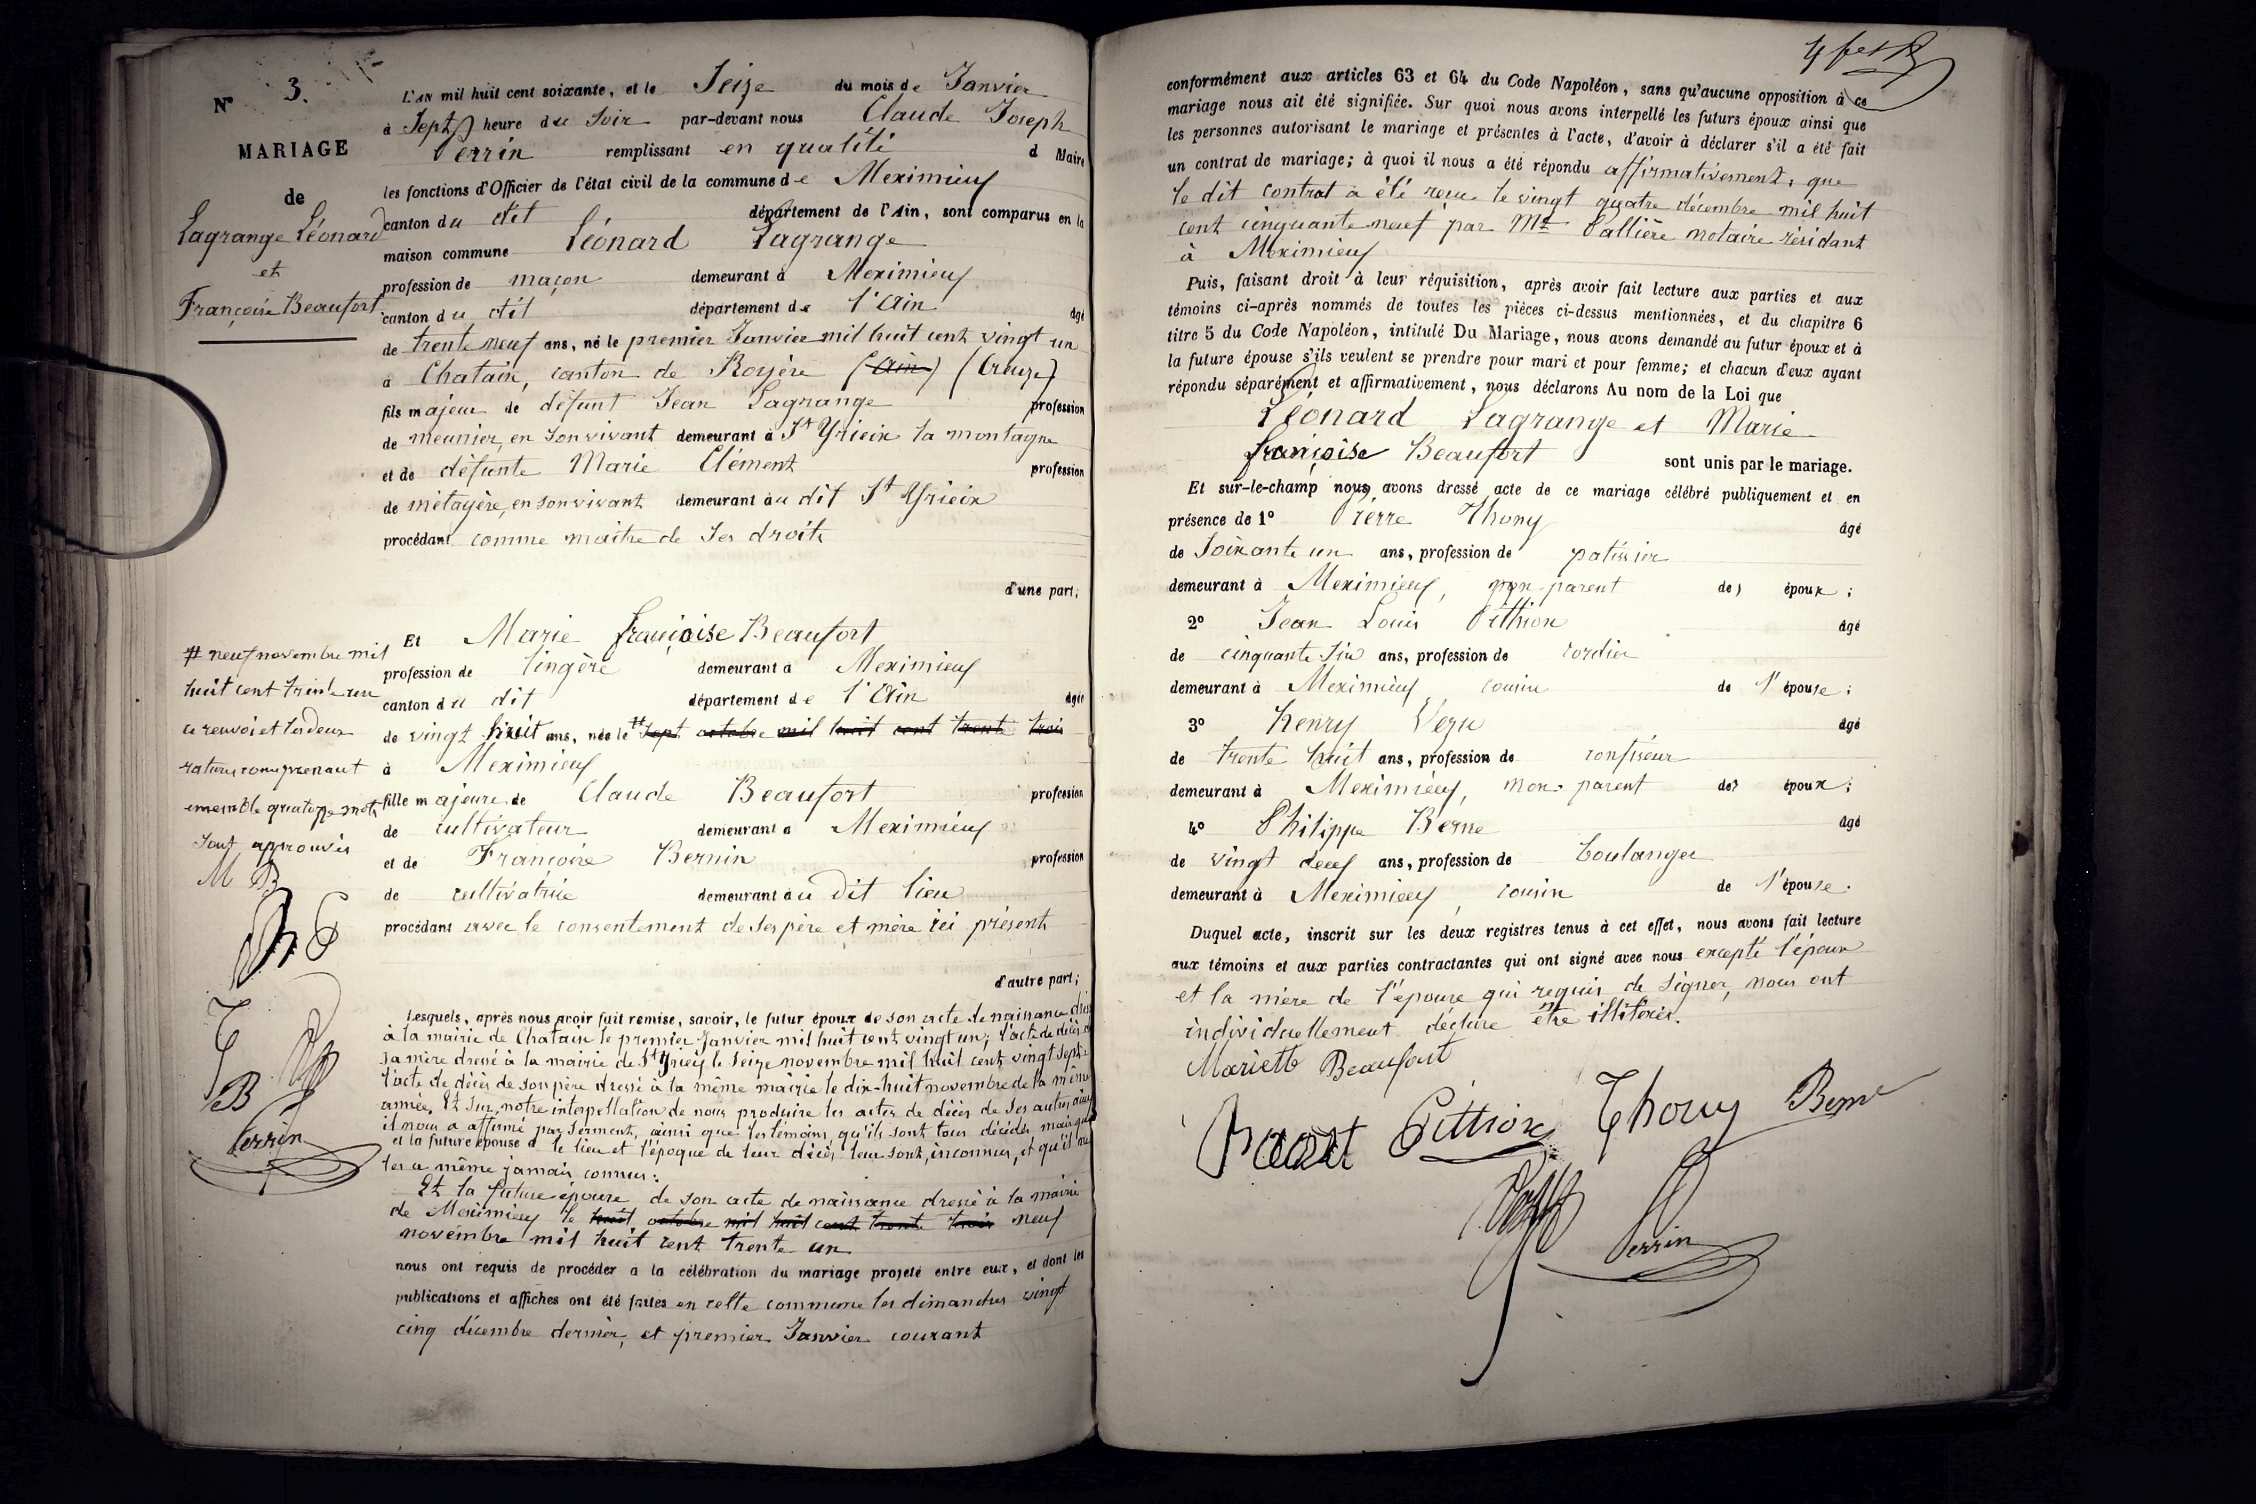 N° 3.
MARIAGE
de
Lagrange Léonard
et
Françoise Beaufort
L'AN mil huit cent soixante, et le Seize du mois de Janvier
à Sept heure du Soir par-devant nous Claude Joseph
Perrin remplissant en qualité d Maire
les fonctions d'Officier de l'état civil de la commune de Meximieux
canton du dit département de l'Ain, sont comparus en la
maison commune Léonard Lagrange
profession de maçon demeurant à Meximieux
canton du dit département de l'Ain âgé
de trente neuf ans, né le premier Janvier mil huit cent vingt un
à Chatain, canton de Royère (Ain) (Creuze)
fils majeur de défunt Jean Lagrange profession
de meunier, en son vivant demeurant à St Yrieix la montagne
et de défunte Marie Clément profession
de métayère, en son vivant demeurant au dit St Yrieix
procédant comme maitre de ses droits
d'une part;
Et Marie françoise Beaufort
profession de lingère demeurant à Meximieux
canton du dit département de l'Ain âgée
de vingt huit ans, née le # Sept octobre mil huit cent trente trois
à Meximieux
fille majeure de Claude Beaufort profession
de cultivateur demeurant à Meximieux
et de Françoise Bernin profession
de cultivatrice demeurant au dit lieu
procédant avec le consentement de ses père et mère ici présents
d'autre part;
# neuf novembre mil
huit cent trente un
ce renvoi et les deux
ratures comprenant
ensemble quatorze mots
sont approuvés
M B
B
Perrin
Lesquels, après nous avoir fait remise, savoir, le futur époux de son acte de naissance
à la mairie de Chatain le premier Janvier mil huit cent vingt un; l'acte de décès
sa mère dressé à la mairie de St Yrieix le Seize novembre mil huit cent vingt sept
l'acte de décès de son père dressé à la même mairie le dix-huit novembre de la même
année, Et sur notre interpellation de nous produire les actes de décès de ses autres
il nous a affirmé par serment, ainsi que les témoins, qu'ils sont tous décédés mais que
et la future épouse d le lieu et l'époque de leur décès leur sont, inconnus, et qu'il ne
les a même jamais connus:
Et la future épouse de son acte de naissance dressé à la mairie
de Meximieux le huit octobre mil huit cent trente trois neuf
novembre mil huit cent trente un
nous ont requis de procéder à la célébration du mariage projeté entre eux, et dont les
publications et affiches ont été faites en cette commune les dimanches vingt
cinq décembre dernier, et premier Janvier courant
conformément aux articles 63 et 64 du Code Napoléon, sans qu'aucune opposition à ce
mariage nous ait été signifiée. Sur quoi nous avons interpellé les futurs époux ainsi que
les personnes autorisant le mariage et présentes à l'acte, d'avoir à déclarer s'il a été fait
un contrat de mariage; à quoi il nous a été répondu affirmativement, que
le dit contrat à été reçu le vingt quatre décembre mil huit
cent cinquante neuf par Me Vallière notaire résidant
à Meximieux
Puis, faisant droit à leur réquisition, après avoir fait lecture aux parties et aux
témoins ci-après nommés de toutes les pièces ci-dessus mentionnées, et du chapitre 6
titre 5 du Code Napoléon, intitulé Du Mariage, nous avons demandé au futur époux et à
la future épouse s'ils veulent se prendre pour mari et pour femme; et chacun d'eux ayant
répondu séparément et affirmativement, nous déclarons Au nom de la Loi que
Léonard Lagrange et Marie
françoise Beaufort sont unis par le mariage.
Et sur-le-champ nous avons dressé acte de ce mariage célébré publiquement et en
présence de 1° Pierre Thouy âgé
de Soixante un ans, profession de patissier
demeurant à Meximieux, non parent des époux;
2° Jean Louis Pithion âgé
de cinquante six ans, profession de cordier
demeurant à Meximieux, cousin de l'épouse;
3° henry Vezu âgé
de trente huit ans, profession de confiseur
demeurant à Meximieux, non parent des époux;
4° Philippe Berne âgé
de vingt deux ans, profession de boulanger
demeurant à Meximieux, cousin de l'épouse.
Duquel acte, inscrit sur les deux registres tenus à cet effet, nous avons fait lecture
aux témoins et aux parties contractantes qui ont signé avec nous excepté l'époux
et la mère de l'épouse qui requis de signer, nous ont
individuellement déclaré être illitérés.
Mariette Beaufort
Pittion Thouy Berne
Perrin